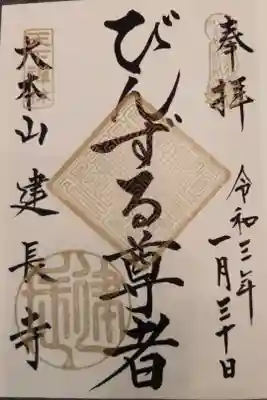 奉拝
令和三年
一月三十日
びんずる尊者
大本山 建長寺